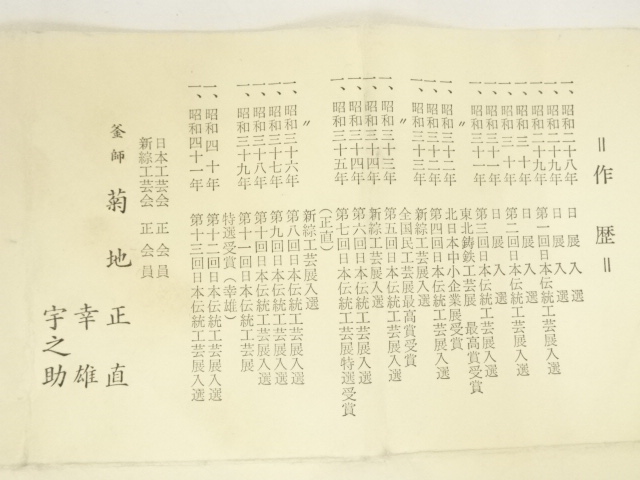 ＝作歴＝
一、昭和二十八年　日展入選
一、昭和二十九年　日展入選
一、昭和二十九年　第一回日本伝統工芸展入選
一、昭和三十年　日展入選
一、昭和三十年　第二回日本伝統工芸展入選
一、昭和三十一年　日展入選
一、昭和三十一年　第三回日本伝統工芸展入選
〃　東北鋳鉄工芸展　最高賞受賞
一、昭和三十二年　北日本中小企業展受賞
一、昭和三十二年　第四回日本伝統工芸展入選
一、昭和三十三年　新綜工芸展入選
〃　全国民工芸展最高賞受賞
一、昭和三十三年　第五回日本伝統工芸展入選
一、昭和三十四年　新綜工芸展入選
一、昭和三十四年　第六回日本伝統工芸展入選
一、昭和三十五年　第七回日本伝統工芸展特選受賞
（正直）
〃　新綜工芸展入選
一、昭和三十六年　第八回日本伝統工芸展入選
一、昭和三十七年　第九回日本伝統工芸展入選
一、昭和三十八年　第十回日本伝統工芸展入選
一、昭和三十九年　第十一回日本伝統工芸展
特選受賞（幸雄）
一、昭和四十年　第十二回日本伝統工芸展入選
一、昭和四十一年　第十三回日本伝統工芸展入選
日本工芸会　正会員
新綜工芸会　正会員
釜師　菊地正直
幸雄
宇之助